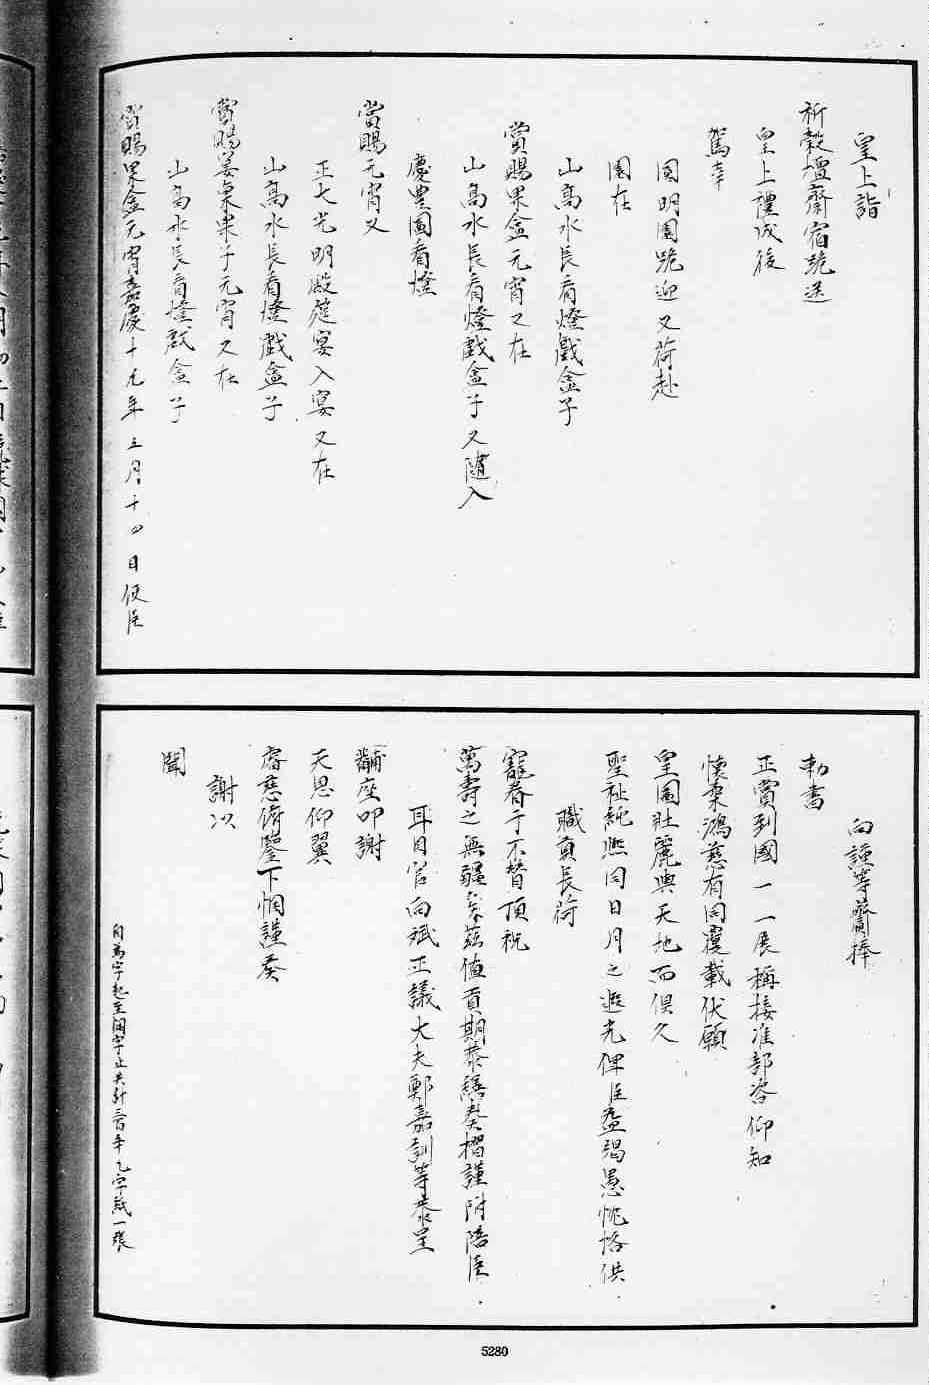 皇上詣
祈穀壇齋宿跪送
皇上禮成後
駕幸
圓明園跪迎又荷赴
園在
山高水長看燈戲盒子
賞賜果盒元宵又在
山高水長看燈戲盒子又隨入
慶豊圖看燈
當賜元宵又
正大光明殿筵宴入宴又在
山高水長看燈戲盒子
當賜羹菓果子元宵又在
山高水長看燈戲盒子
當賜果盒元宵嘉慶十九年三月十四日使臣
向謹等齎捧
勅書
正賞到國一一展稱接准部咨仰知
懐柔鴻慈有同覆載伏願
皇圖壯麗與天地而俱久
聖祉純熙同日月之遐光俾臣益竭愚忱恪供
職貢長荷
寵眷于不替頂祝
萬壽之無疆矣茲值貢期恭繕奏摺謹附陪臣
耳目官向斌正議大夫鄭嘉訓等恭呈
黼座叩謝
天恩仰翼
睿慈俯鑒下悃謹奏
謝以
聞
自為字起至聞字止共計三百 字紙一張
5280